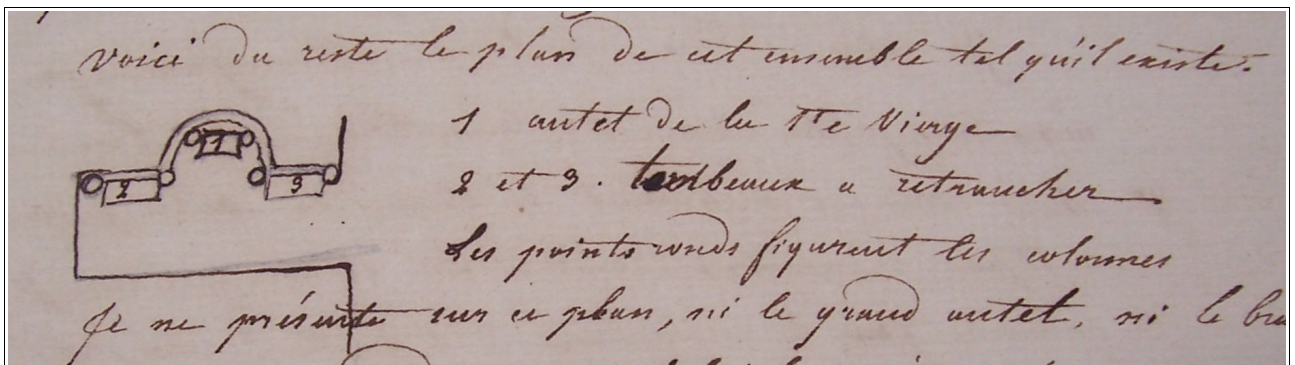 voici du reste le plan de cet ensemble tel qu'il existe.
1 autel de la Ste Vierge
1
2 et 3. tombeaux a retrancher
2
3
Les points ronds figurent les colonnes
Je ne présente sur ce plan, ni le grand autel, ni le